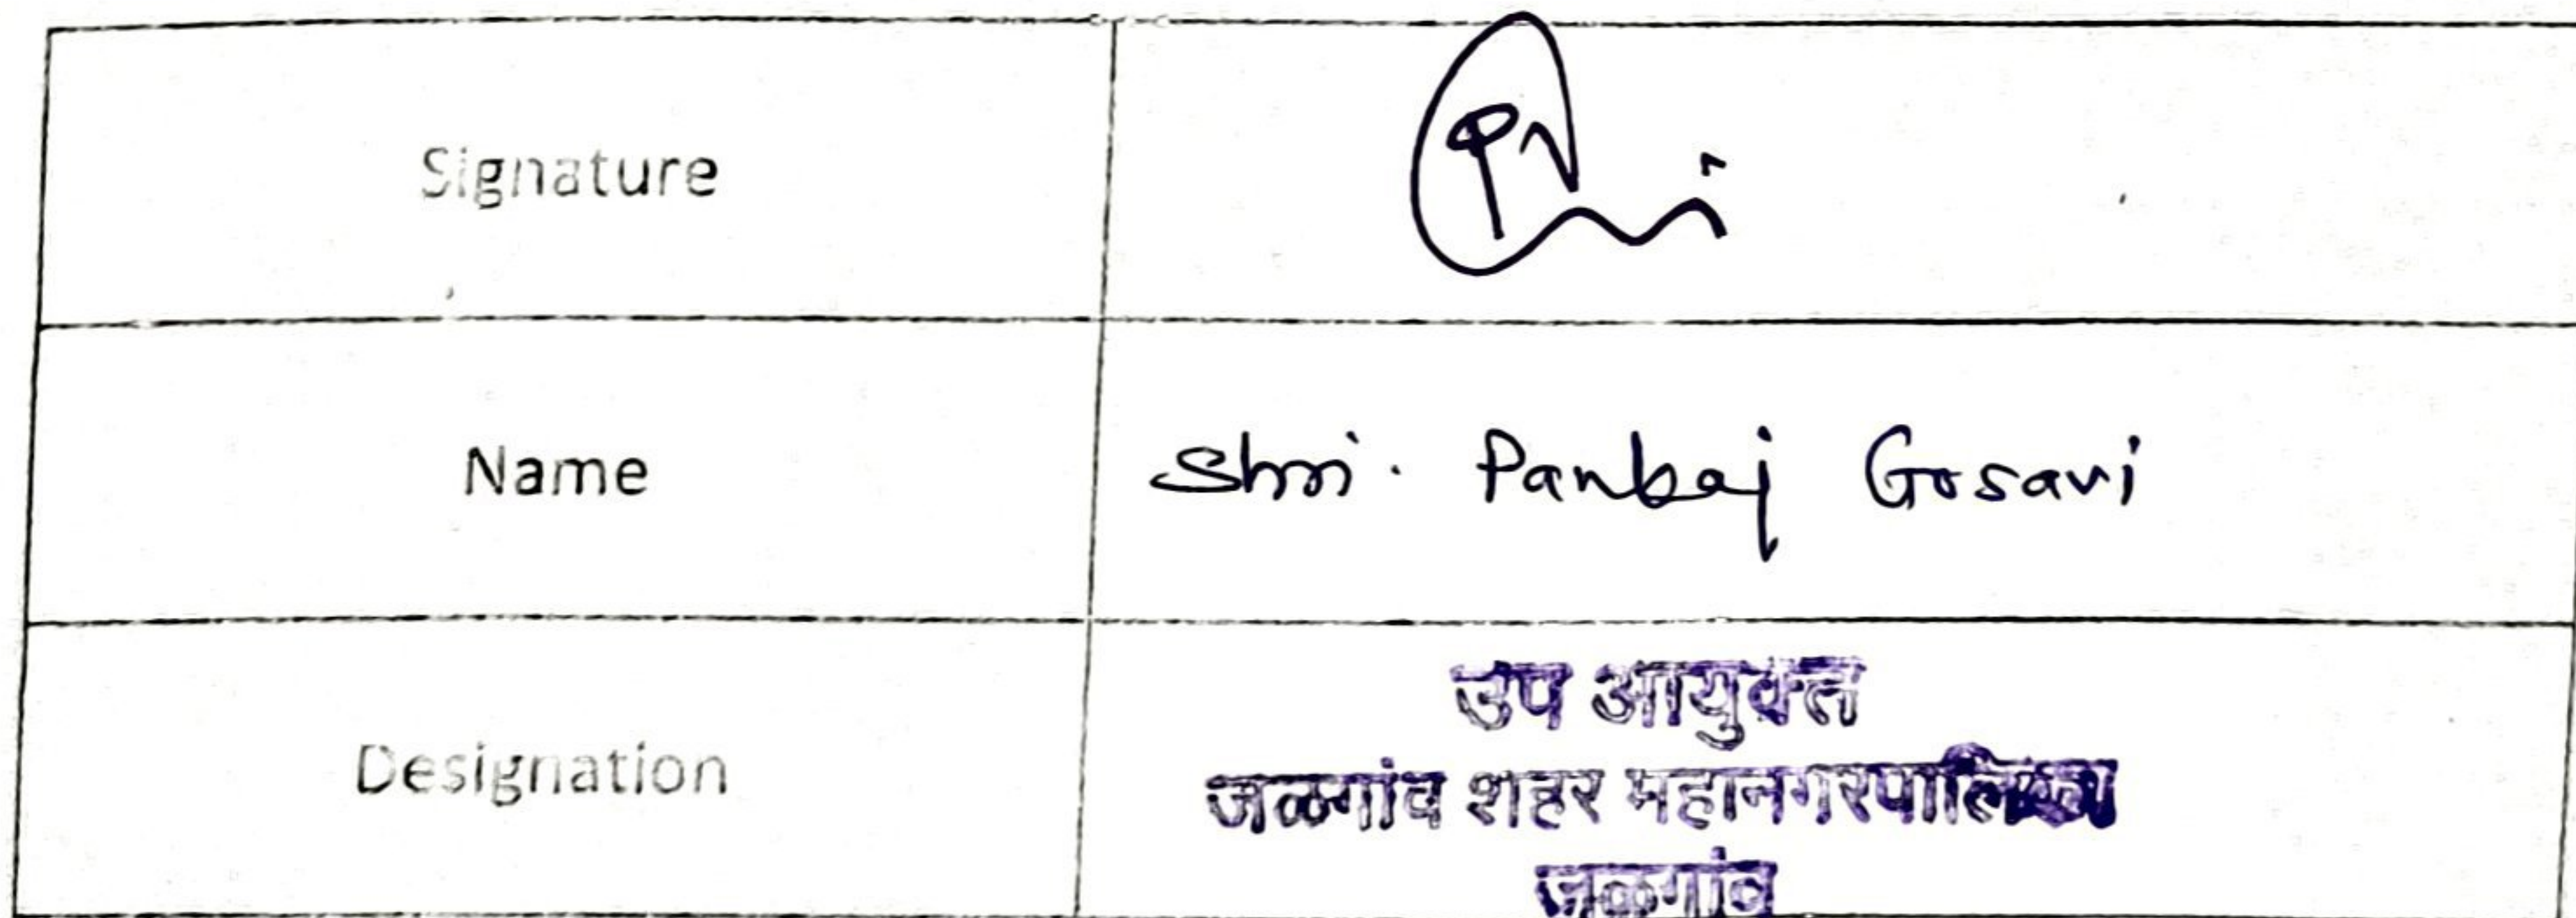 Signature
Name
Shri. Pankaj Gosavi
Designation
उप आयुक्त
जळगांव शहर महानगरपालिका
जळगांव